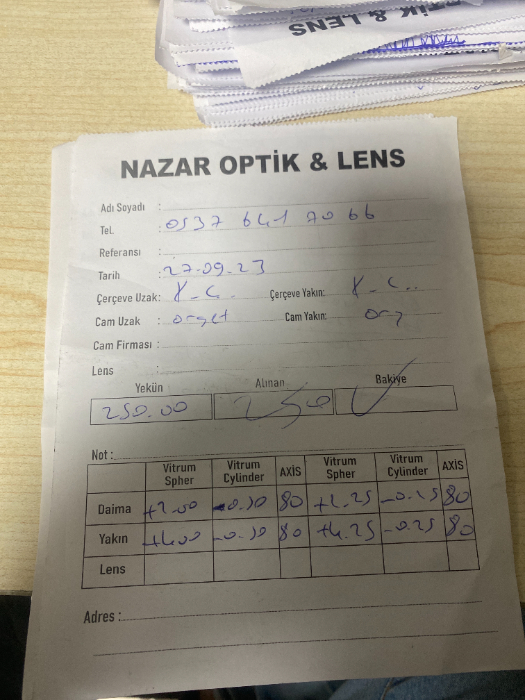 OPTİK & LENS
NAZAR OPTİK & LENS
Adı Soyadı :
Tel. : 0537 641 70 66
Referansı :
Tarih : 27.09.23
Çerçeve Uzak: K-C. Çerçeve Yakın: K-C..
Cam Uzak : orget Cam Yakın: org
Cam Firması :
Lens :
Yekün Alınan Bakiye
250.00 250
Not :
Vitrum Spher Vitrum Cylinder AXİS Vitrum Spher Vitrum Cylinder AXİS
Daima +2.00 -0.50 80 +2.25 -0.25 80
Yakın +4.00 -0.50 80 +4.25 -0.25 80
Lens
Adres :